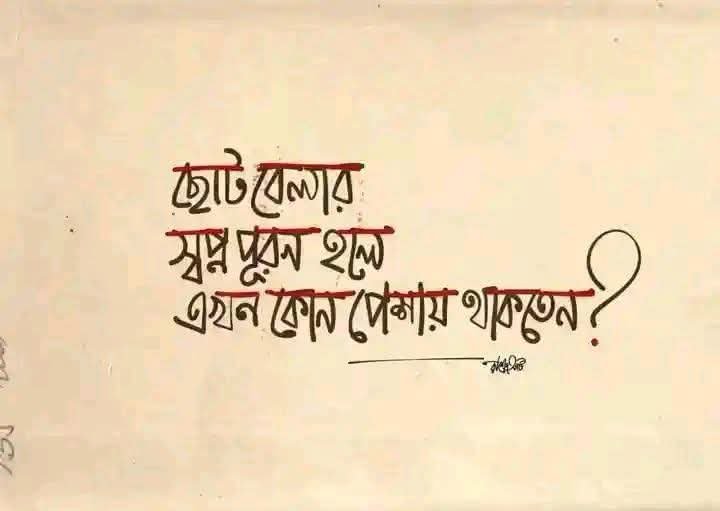 ছোট বেলার
স্বপ্ন পূরন হলে
এখন কোন পেশায় থাকতেন?